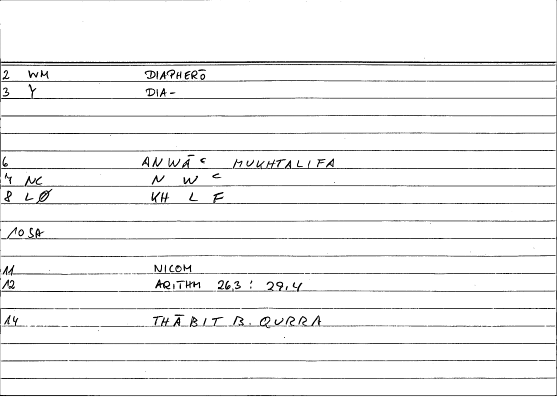 2 WM DIAPHERŌ
3 Y DIA-
6 ANWĀ ʿ MUKHTALIFA
7 NC N W ʿ
8 LØ KH L F
10 SA
11 NICOM
12 ARITHM 26,3 : 29,4
14 THĀBIT B. QURRA